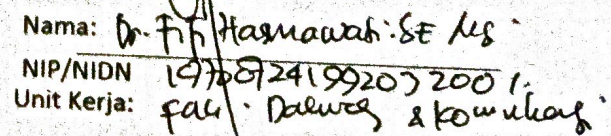 Nama: Dr. Fifi Hasmawati. SE Ms
NIP/NIDN 197308241992032001.
Unit Kerja: Fak. Dakwah & Komunikasi